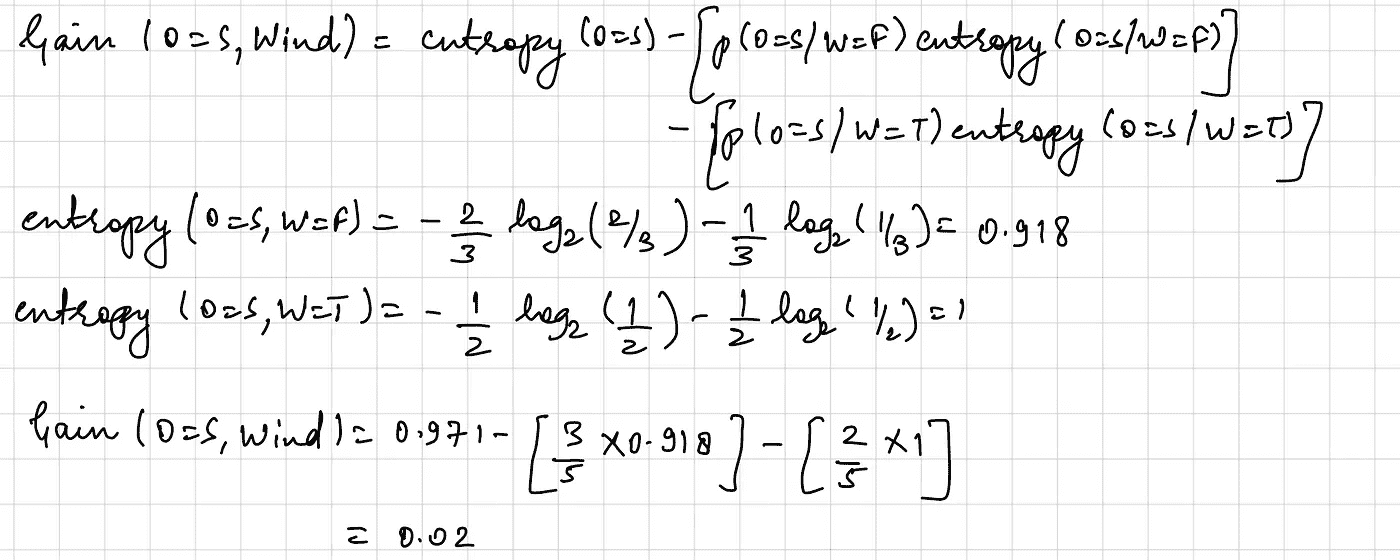 Gain (O=S, Wind) = entropy (O=S) - [p(O=S/W=F) entropy (O=S/W=F)]
- [p(O=S/W=T) entropy (O=S/W=T)]
entropy (O=S, W=F) = - 2/3 log₂(2/3) - 1/3 log₂(1/3) = 0.918
entropy (O=S, W=T) = - 1/2 log₂(1/2) - 1/2 log₂(1/2) = 1
Gain (O=S, Wind) = 0.971 - [3/5 × 0.918] - [2/5 × 1]
= 0.02